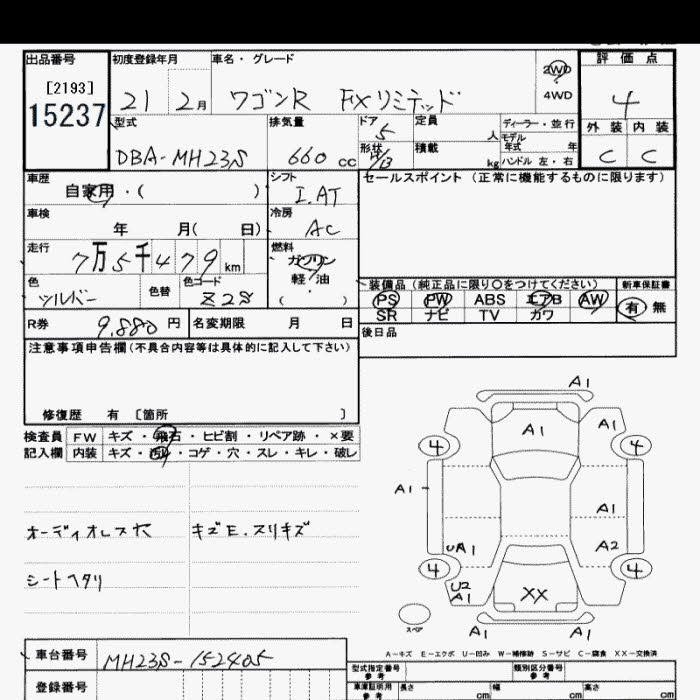 出品番号 初度登録年月 車名・グレード 2WD 評価点
[2193] 4WD
15237 21 2月 ワゴンR FXリミテッド 4
型式 排気量 ドア 5 定員 人 ディーラー・並行 外装 内装
DBA-MH23S 660 cc 形状 積載 kg モデル年式 年 ハンドル 左・右 C C
車歴 シフト セールスポイント (正常に機能するものに限ります)
自家用・( ) I.AT
車検 冷房
年 月( 日) AC
走行 燃料
7万5千479km ガソリン
色 色替 色コード 軽・油 装備品(純正品に限り○をつけてください) 新車保証書
シルバー Z2S ( ) PS PW ABS エアB AW 有 無
SR ナビ TV カワ
R券 9,880円 名変期限 月 日 後日品
注意事項申告欄(不具合内容等は具体的に記入して下さい)
修復歴 有 〔箇所 〕
検査員 FW キズ・飛石・ヒビ割・リペア跡・×要
記入欄 内装 キズ・汚れ・コゲ・穴・スレ・キレ・破レ
オーディオレス穴 キズE.スリキズ
シートヘタリ
A1
A1 A1
4 4
A1 A1
UA1 A2
4 4
U2
A1 XX
スペア A1 A1
A-キズ E-エクボ U-凹み W-補修跡 S-サビ C-腐食 XX-交換済
車台番号 MH23S-152405
登録番号
型式指定番号 参考 類別区分番号 参考
車庫証明用 参考 長さ cm 幅 cm 高さ cm